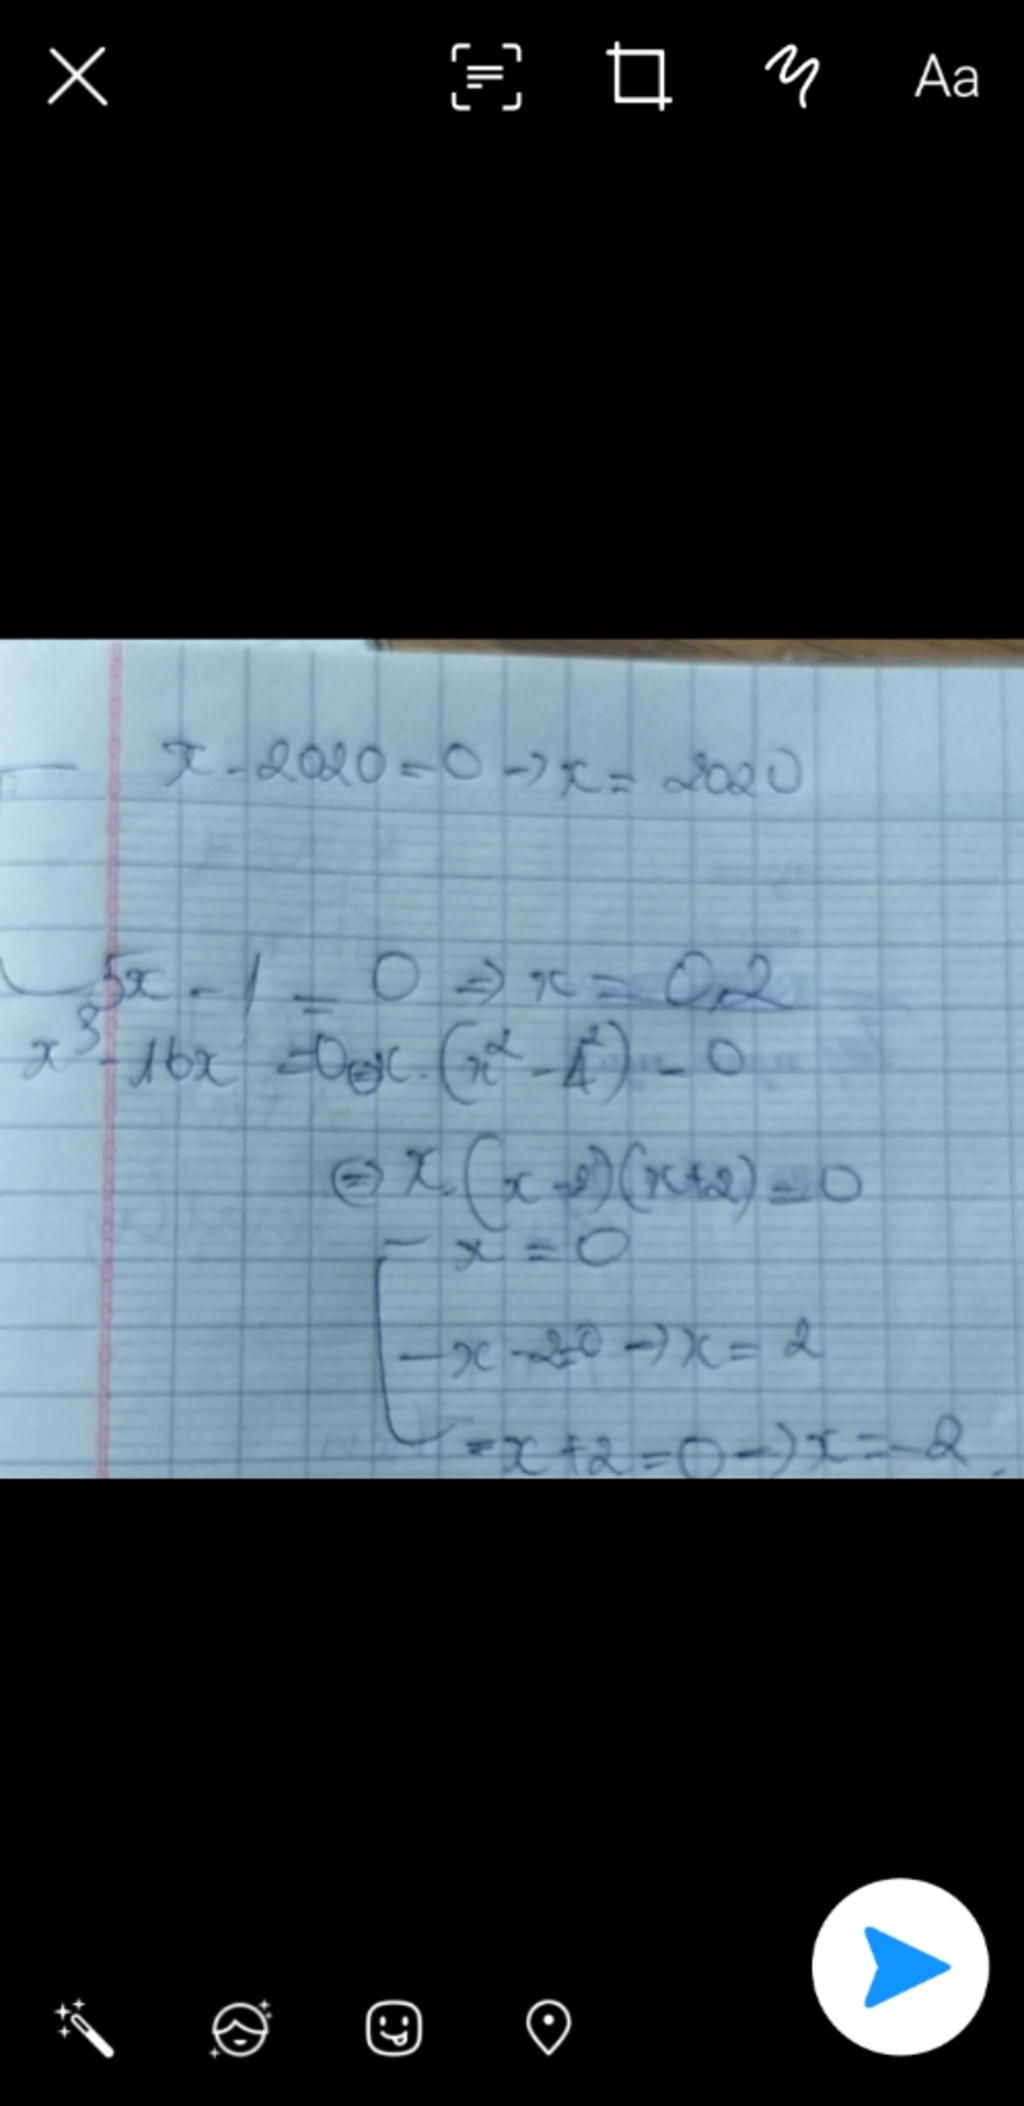 Aa
x - 2020 = 0 → x = 2020
5x - 1 = 0 ⇒ x = 0,2
x³ - 16x = 0 ⇔ x.(x² - 4²) = 0
⇔ x.(x - 2)(x + 2) = 0
- x = 0
- x - 2 = 0 → x = 2
- x + 2 = 0 → x = -2